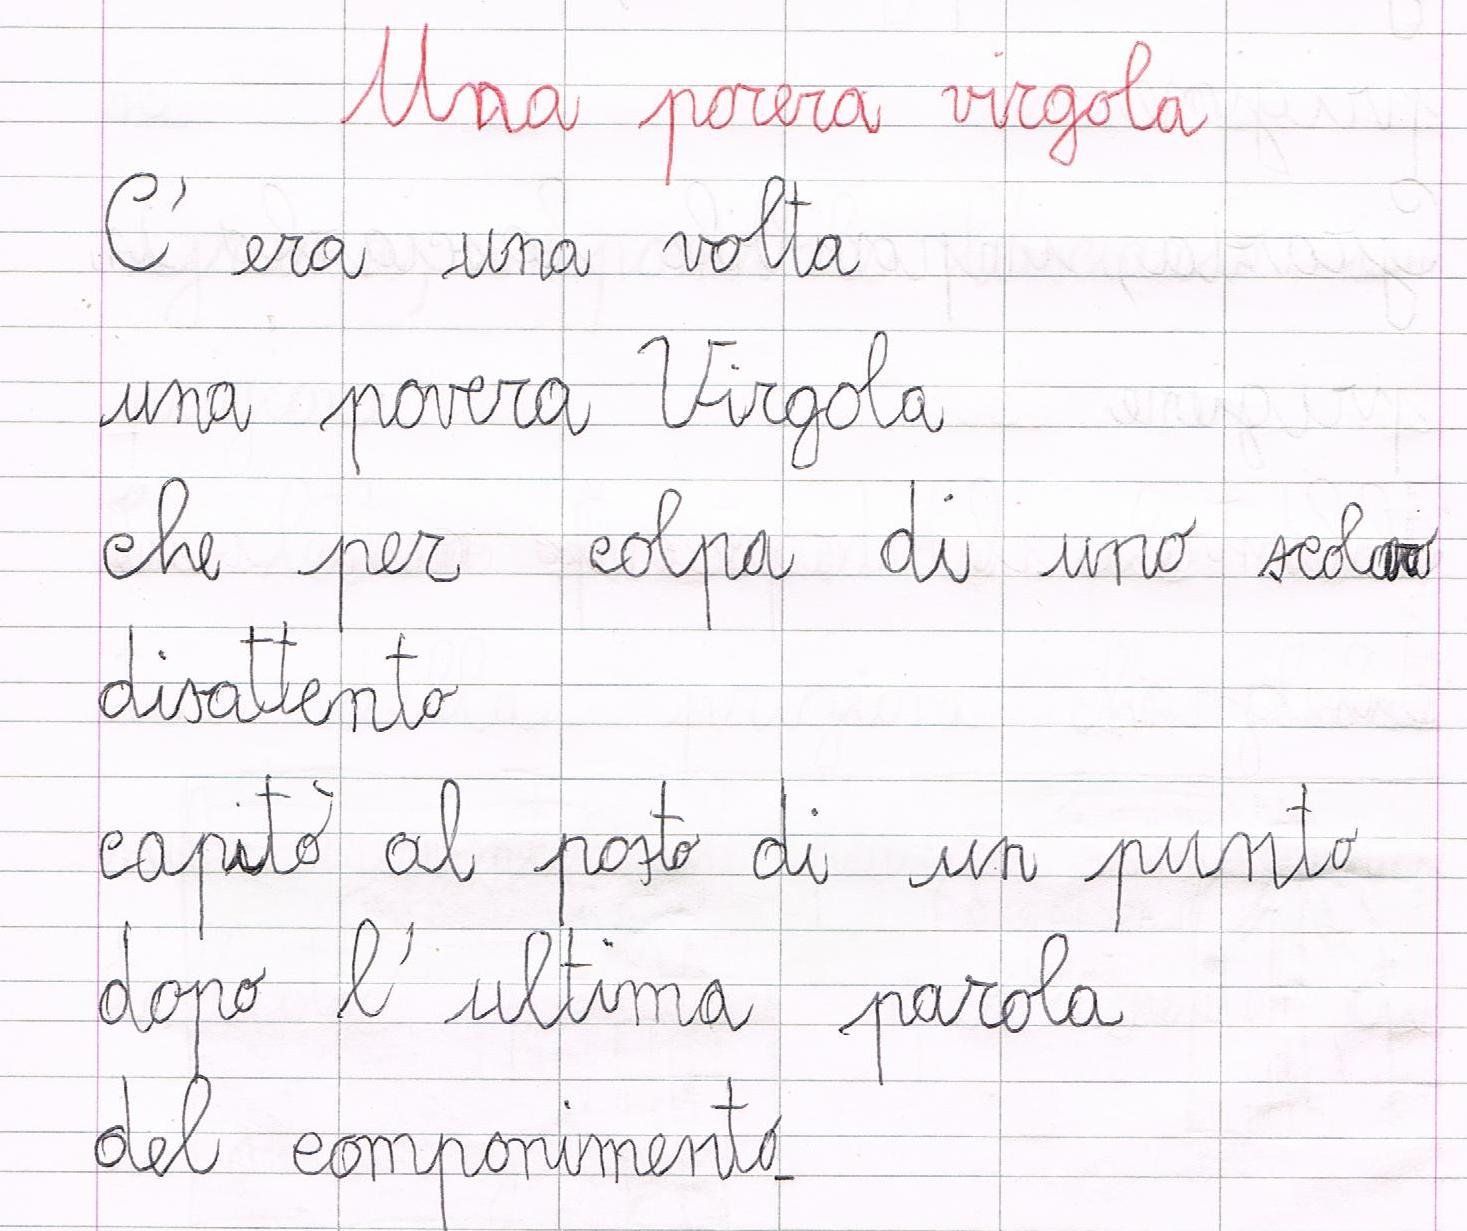 Una povera virgola
C'era una volta
una povera Virgola
che per colpa di uno scolaro
disattento
capitò al posto di un punto
dopo l'ultima parola
del componimento